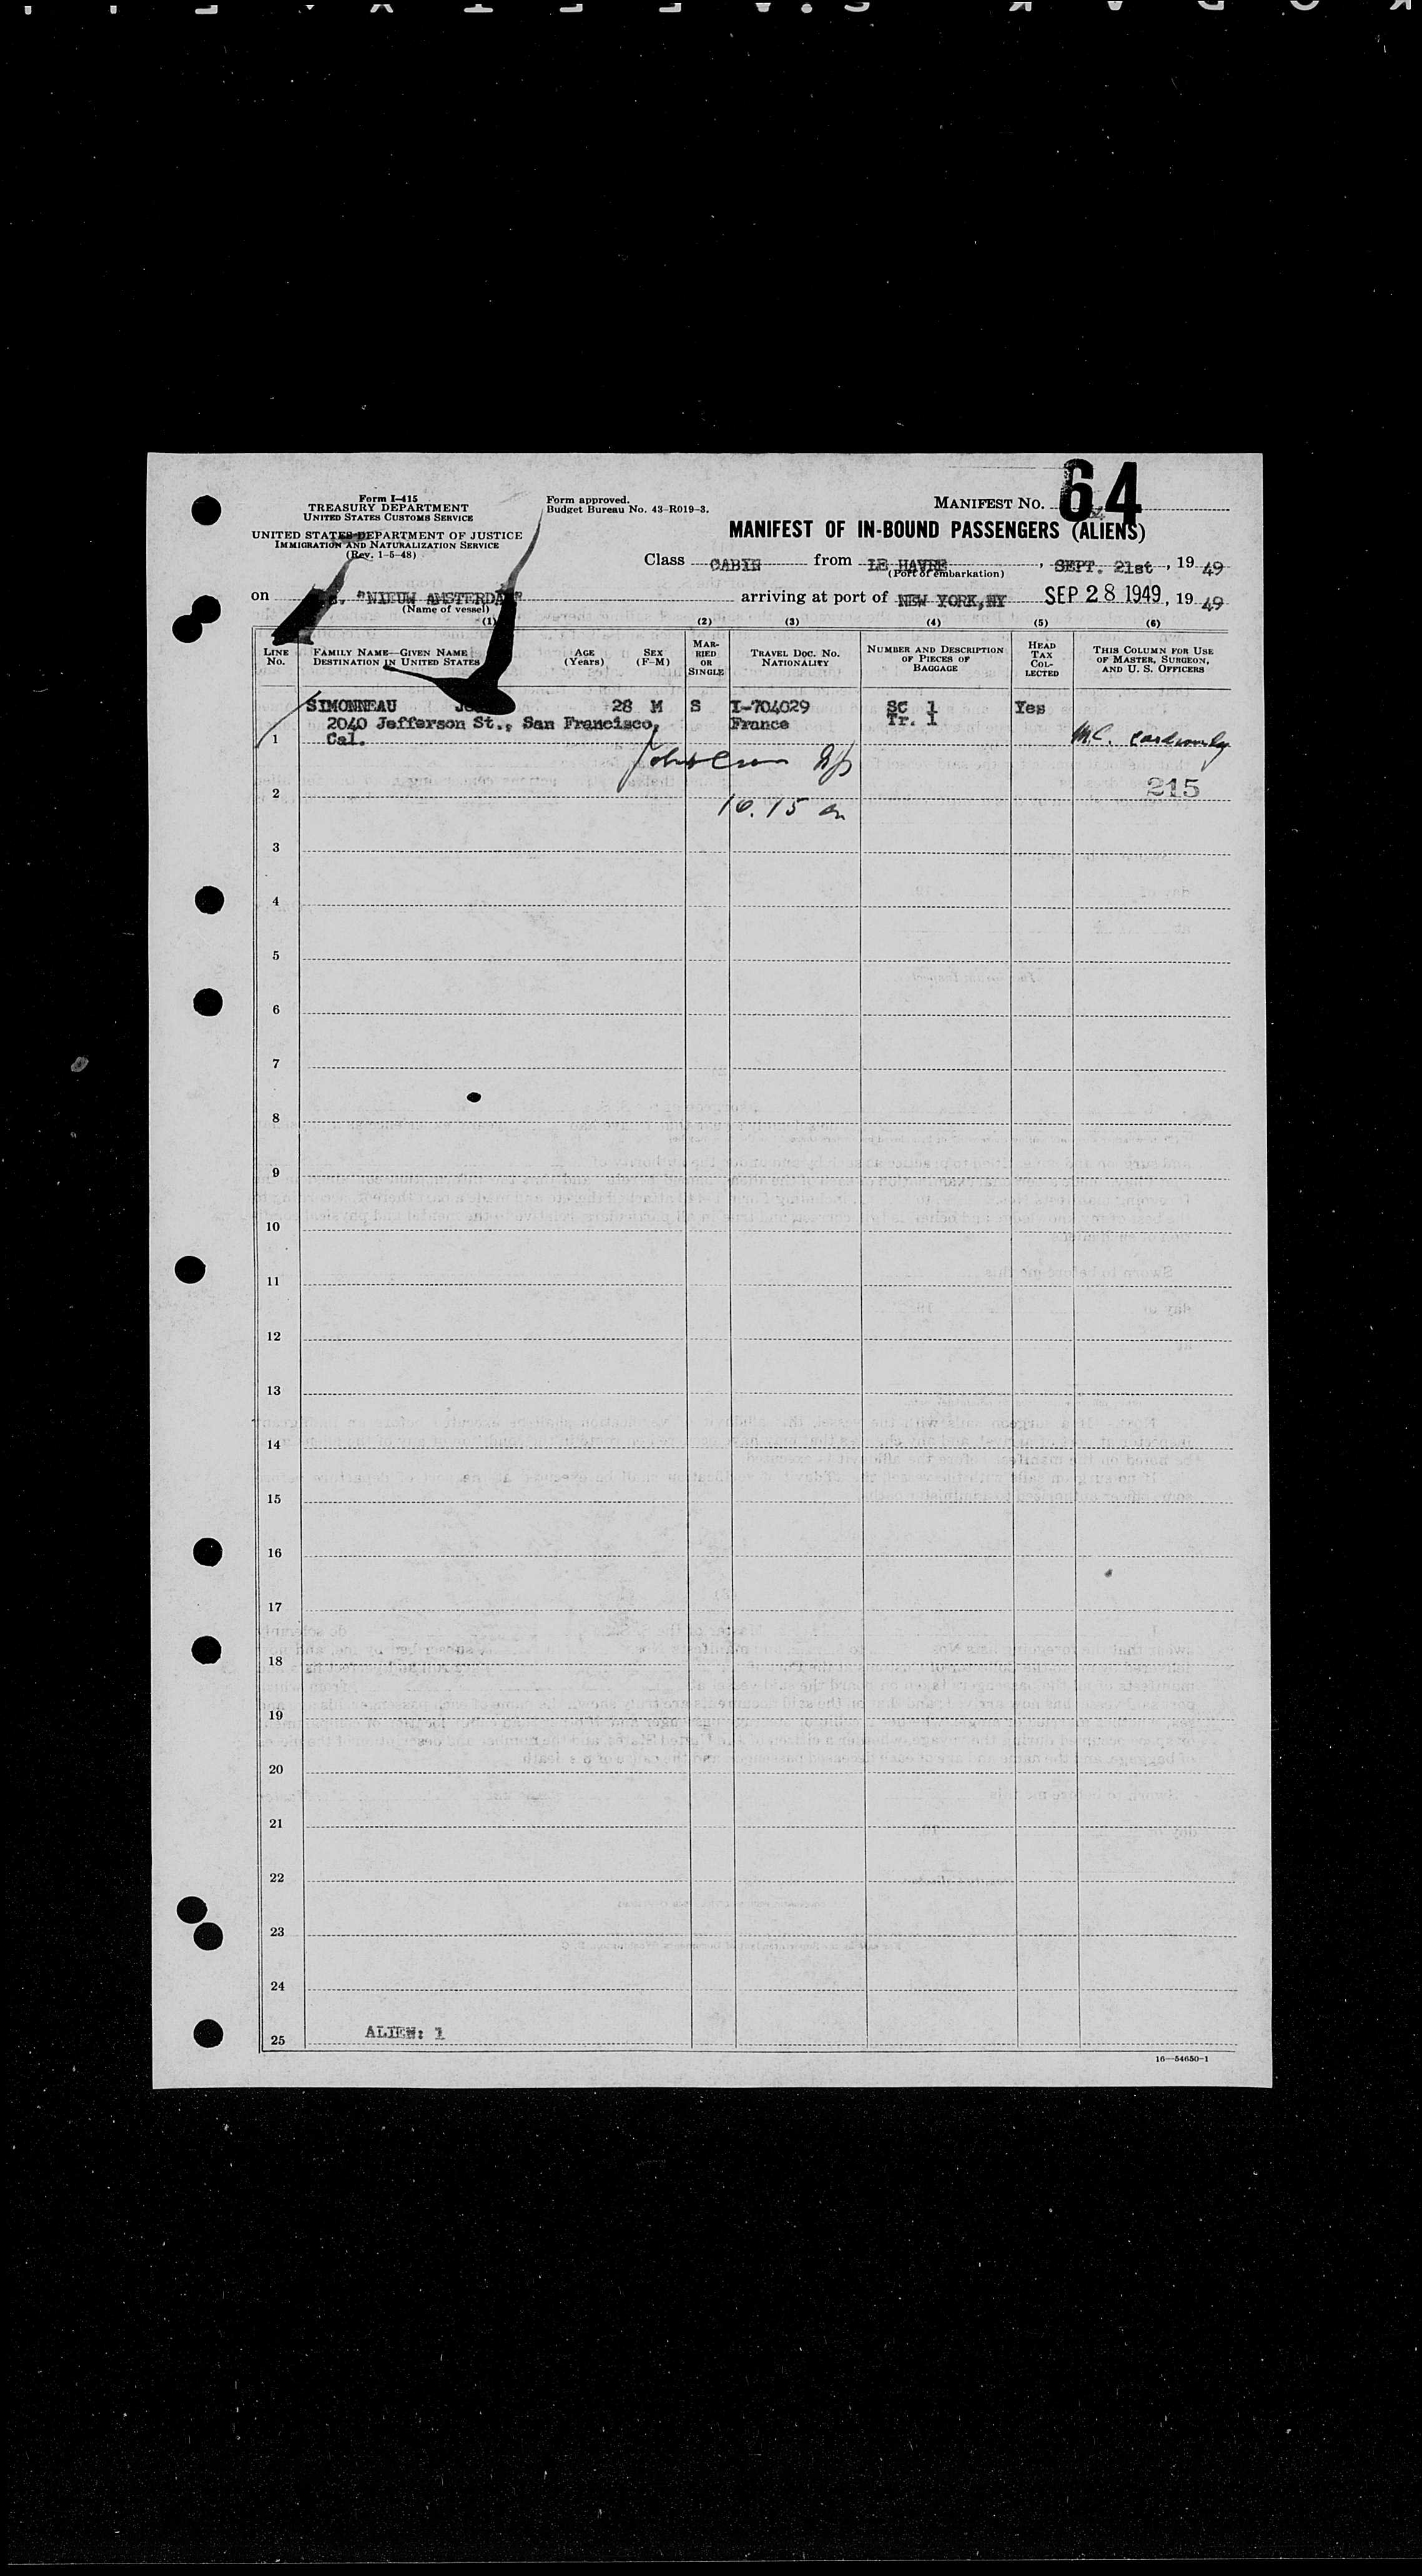 Form I-415
TREASURY DEPARTMENT
UNITED STATES CUSTOMS SERVICE
UNITED STATES DEPARTMENT OF JUSTICE
IMMIGRATION AND NATURALIZATION SERVICE
(Rev. 1-5-48)
Form approved.
Budget Bureau No. 43-R019-3.
MANIFEST NO. 64
MANIFEST OF IN-BOUND PASSENGERS (ALIENS)
Class CABIN from LE HAVRE, SEPT. 21st, 19 49
(Port of embarkation)
on "NIEUW AMSTERDAM" arriving at port of NEW YORK,NY SEP 28 1949, 19 49
(Name of vessel)
(1) (2) (3) (4) (5) (6)
LINE No. FAMILY NAME—GIVEN NAME DESTINATION IN UNITED STATES AGE (Years) SEX (F-M) MARRIED OR SINGLE TRAVEL DOC. NO. NATIONALITY NUMBER AND DESCRIPTION OF PIECES OF BAGGAGE HEAD TAX COLLECTED THIS COLUMN FOR USE OF MASTER, SURGEON, AND U. S. OFFICERS
SIMONNEAU 28 M S I-704029 SC 1 Yes
2040 Jefferson St., San Francisco, France Tr. 1
1 Cal.
2 215
10.15
3
4
5
6
7
8
9
10
11
12
13
14
15
16
17
18
19
20
21
22
23
24
ALIEN: 1
25
16—54650-1